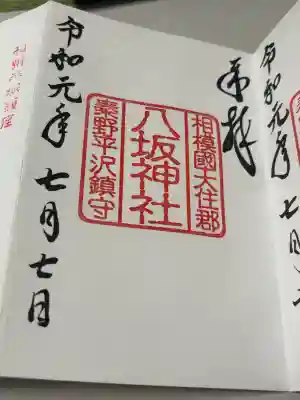 奉拝
相模國大住郡
八坂神社
秦野平沢鎮守
令和元年七月七日
令和元年